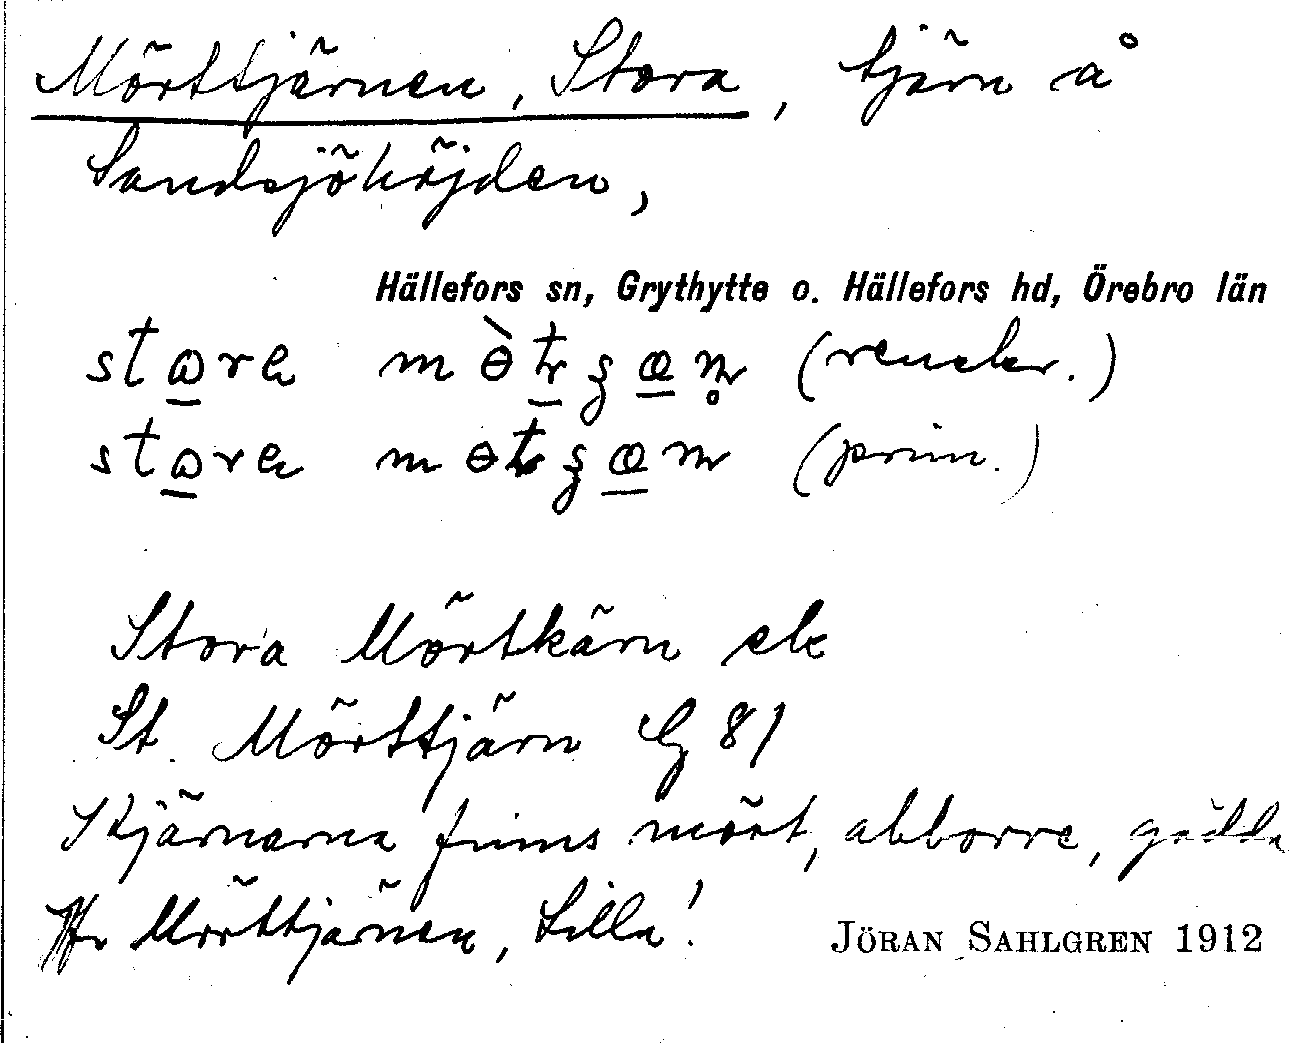 Mörttjärnen, Stora, tjärn å
Sandsjöhöjden,
Hällefors sn, Grythytte o. Hällefors hd, Örebro län
(prim.)
Stora Mörtkärn ek
St. Mörttjärn G 81
I tjärnarna finns mört, abborre, gädda
Jfr Mörttjärnen, Lilla!
JÖRAN SAHLGREN 1912